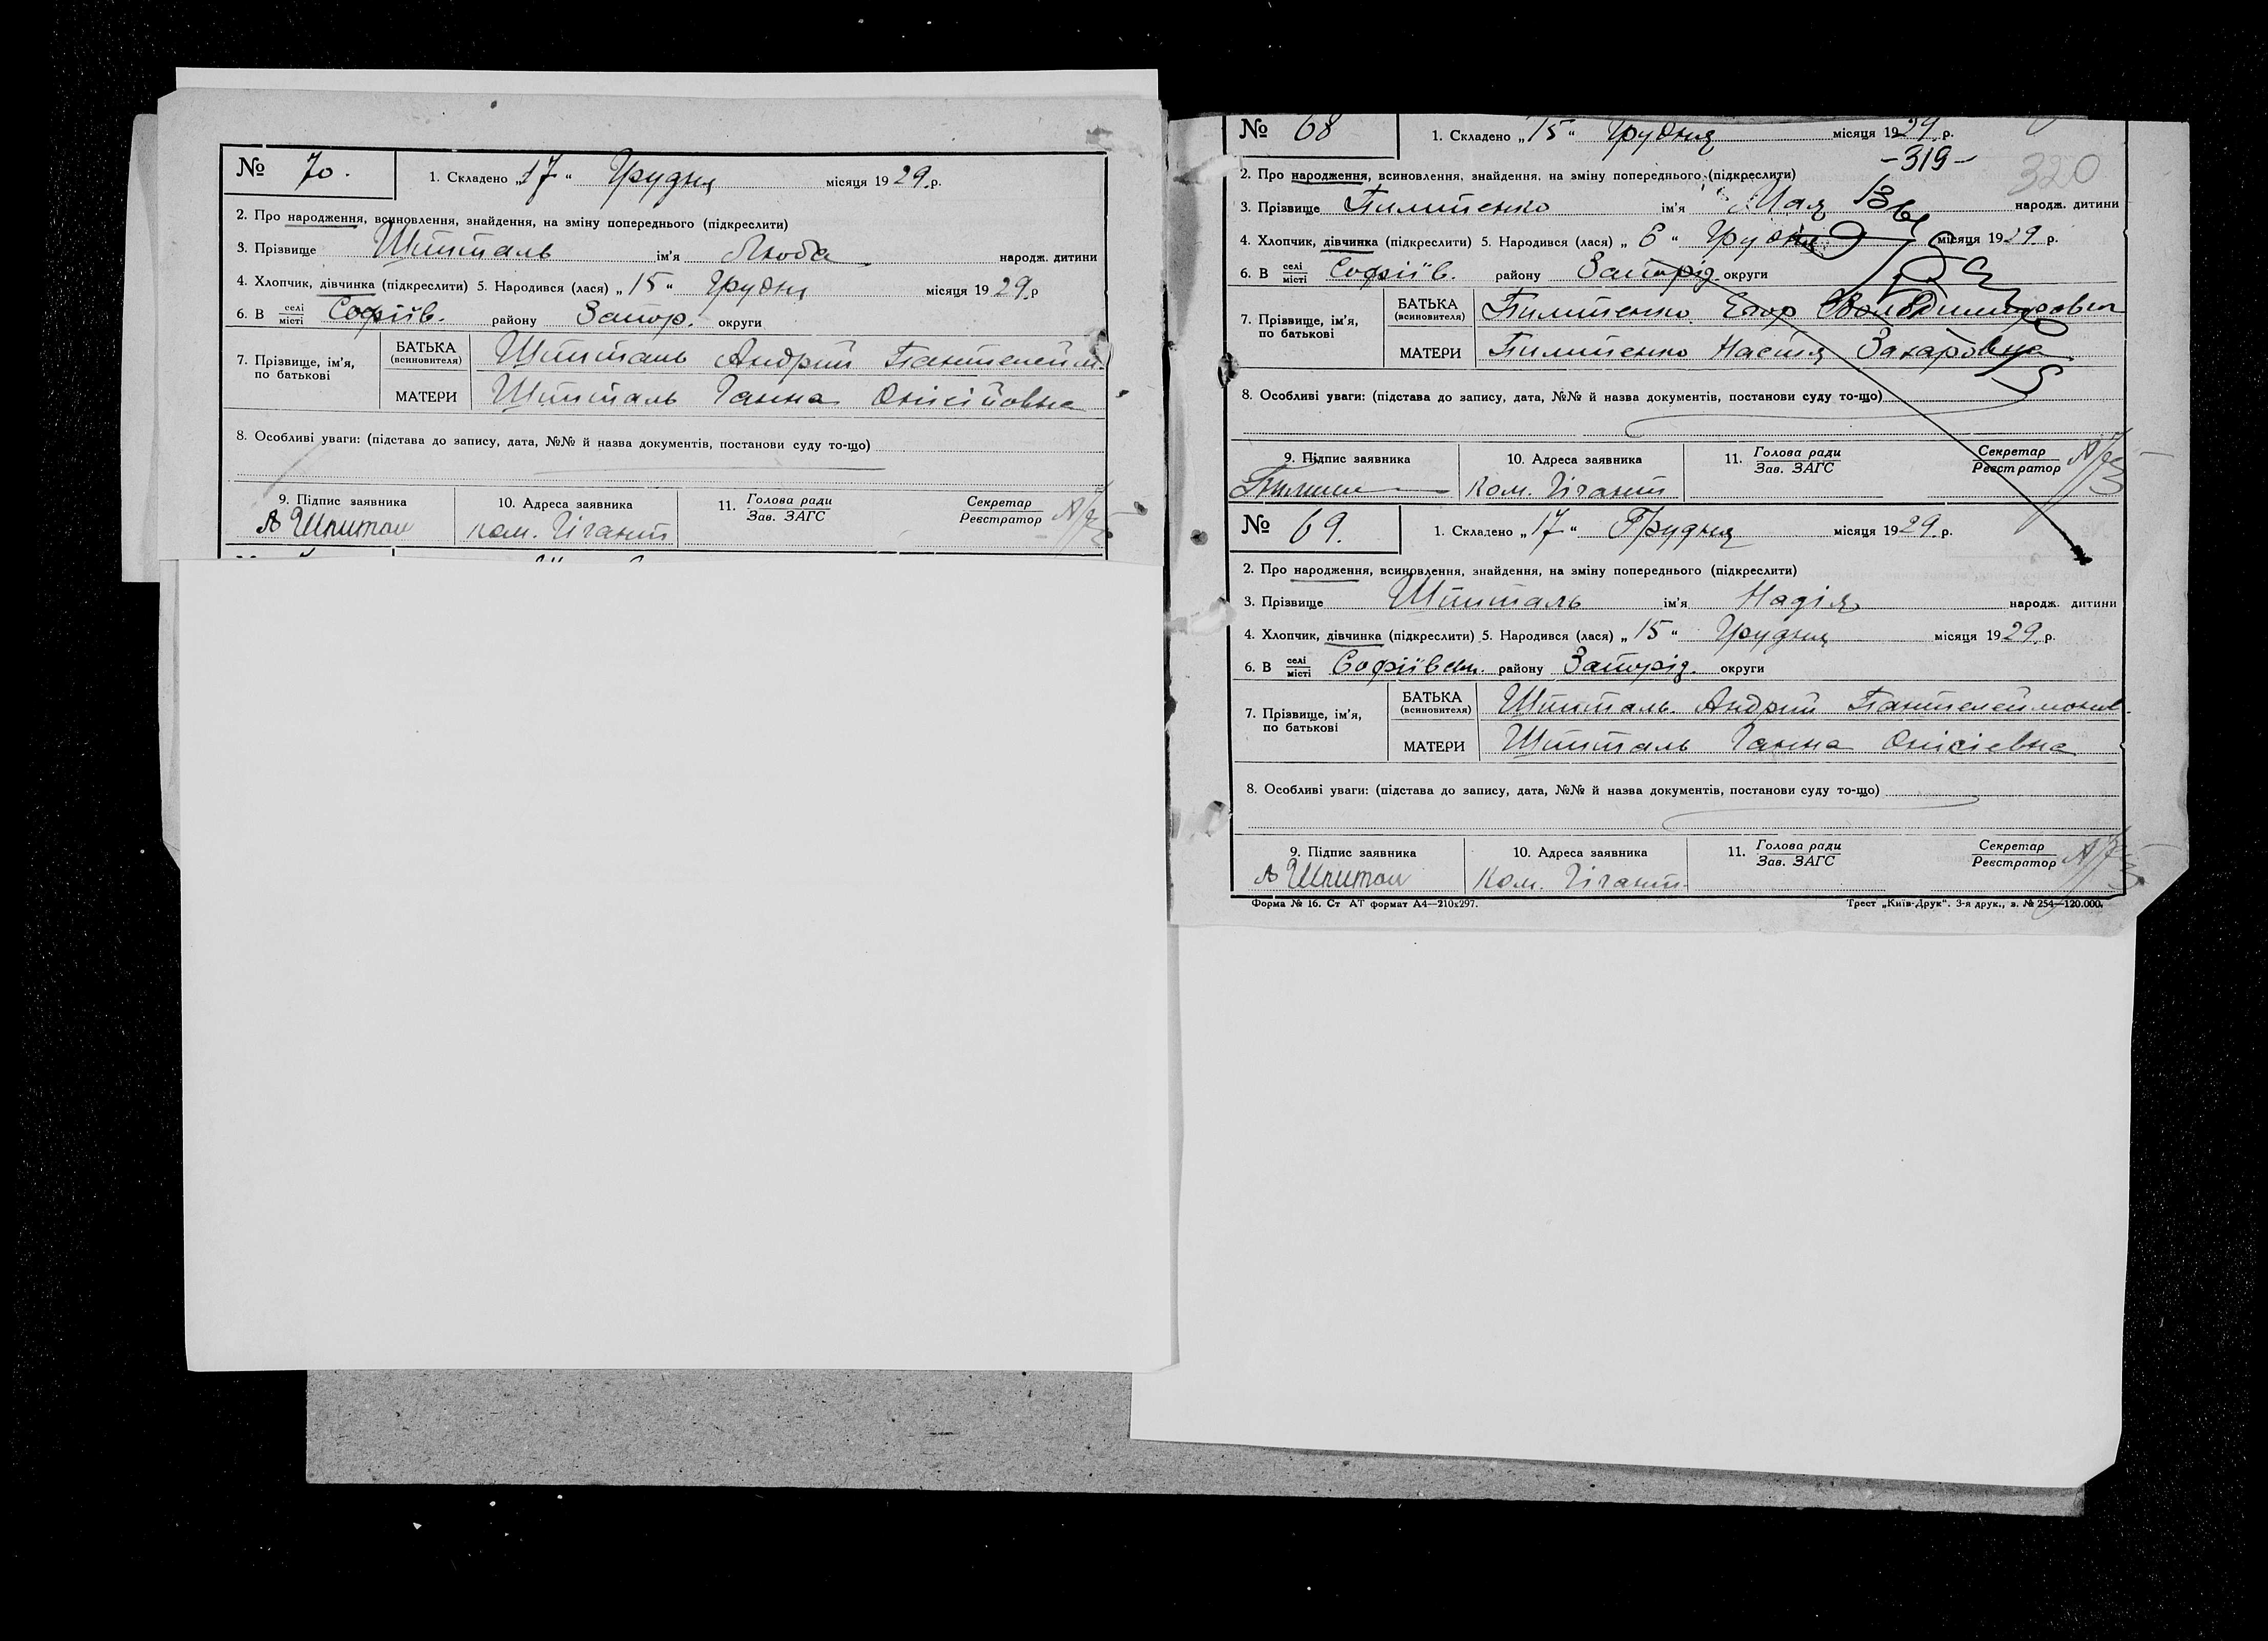 № 70.
1. Складено „17“ Грудня місяця 1929 р.
2. Про народження, всиновлення, знайдення, на зміну попереднього (підкреслити)
3. Прізвище Шпиталь ім'я Люба народж. дитини
4. Хлопчик, дівчинка (підкреслити) 5. Народився (лася) „15“ Грудня місяця 1929 р
6. В селі місті Софіїв. району Запор. округи
7. Прізвище, ім'я, по батькові
БАТЬКА (всиновителя) Шпиталь Андрий Пантелейм.
МАТЕРИ Шпиталь Ганна Онісійовна
8. Особливі уваги: (підстава до запису, дата, №№ й назва документів, постанови суду то-що)
9. Підпис заявника 10. Адреса заявника 11. Голова ради Зав. ЗАГС Секретар Реєстратор
А Шпитал ком. Гігант
№ 68
1. Складено „15“ Грудня місяця 1929 р.
-319-
320
2. Про народження, всиновлення, знайдення, на зміну попереднього (підкреслити)
3. Прізвище Пилипенко ім'я Мая народж. дитини
4. Хлопчик, дівчинка (підкреслити) 5. Народився (лася) „6“ Грудня місяця 1929 р.
6. В селі місті Софіїв. району Запорід. округи
7. Прізвище, ім'я, по батькові
БАТЬКА (всиновителя) Пилипенко Егор Володимирович
МАТЕРИ Пилипенко Настя Захаровна
8. Особливі уваги: (підстава до запису, дата, №№ й назва документів, постанови суду то-що)
9. Підпис заявника 10. Адреса заявника 11. Голова ради Зав. ЗАГС Секретар Реєстратор
Ком. Гігант
№ 69.
1. Складено „17“ Грудня місяця 1929 р.
2. Про народження, всиновлення, знайдення, на зміну попереднього (підкреслити)
3. Прізвище Шпиталь ім'я Надія народж. дитини
4. Хлопчик, дівчинка (підкреслити) 5. Народився (лася) „15“ Грудня місяця 1929 р.
6. В селі місті Софіївськ. району Запорід. округи
7. Прізвище, ім'я, по батькові
БАТЬКА (всиновителя) Шпиталь Андрий Пантелеймонов.
МАТЕРИ Шпиталь Ганна Онісіевна
8. Особливі уваги: (підстава до запису, дата, №№ й назва документів, постанови суду то-що)
9. Підпис заявника 10. Адреса заявника 11. Голова ради Зав. ЗАГС Секретар Реєстратор
А Шпитал Ком. Гігант.
Форма № 16. Ст АТ формат А4—210x297. Трест „Київ-Друк“. 3-я друк., з. № 254—120.000.